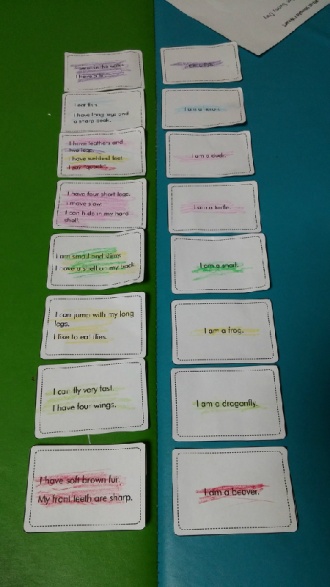 I eat fish.
I have long legs and
a sharp beak.
I am a heron.
I have feathers and
two legs.
I have webbed feet
I have four short legs.
I move slow.
I can hide in my hard
shell.
I am a turtle.
I am small and slimy.
I have a shell on my back.
I am a snail.
I can jump with my long
legs.
I like to eat flies.
I am a frog.
I can fly very fast.
I have four wings.
I am a dragonfly.
I have soft brown fur.
My front teeth are sharp.
I am a beaver.